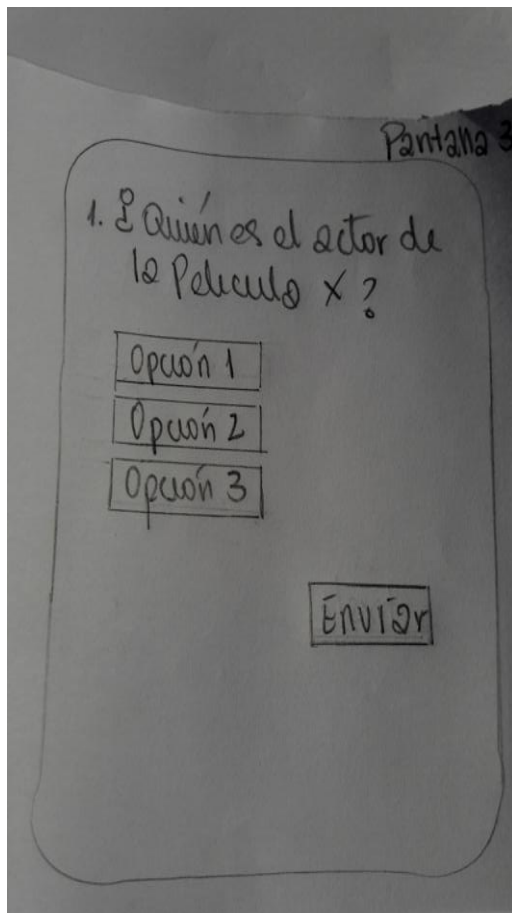 Pantalla 3
1. ¿Quién es el actor de
la Película X?
Opción 1
Opción 2
Opción 3
Enviar